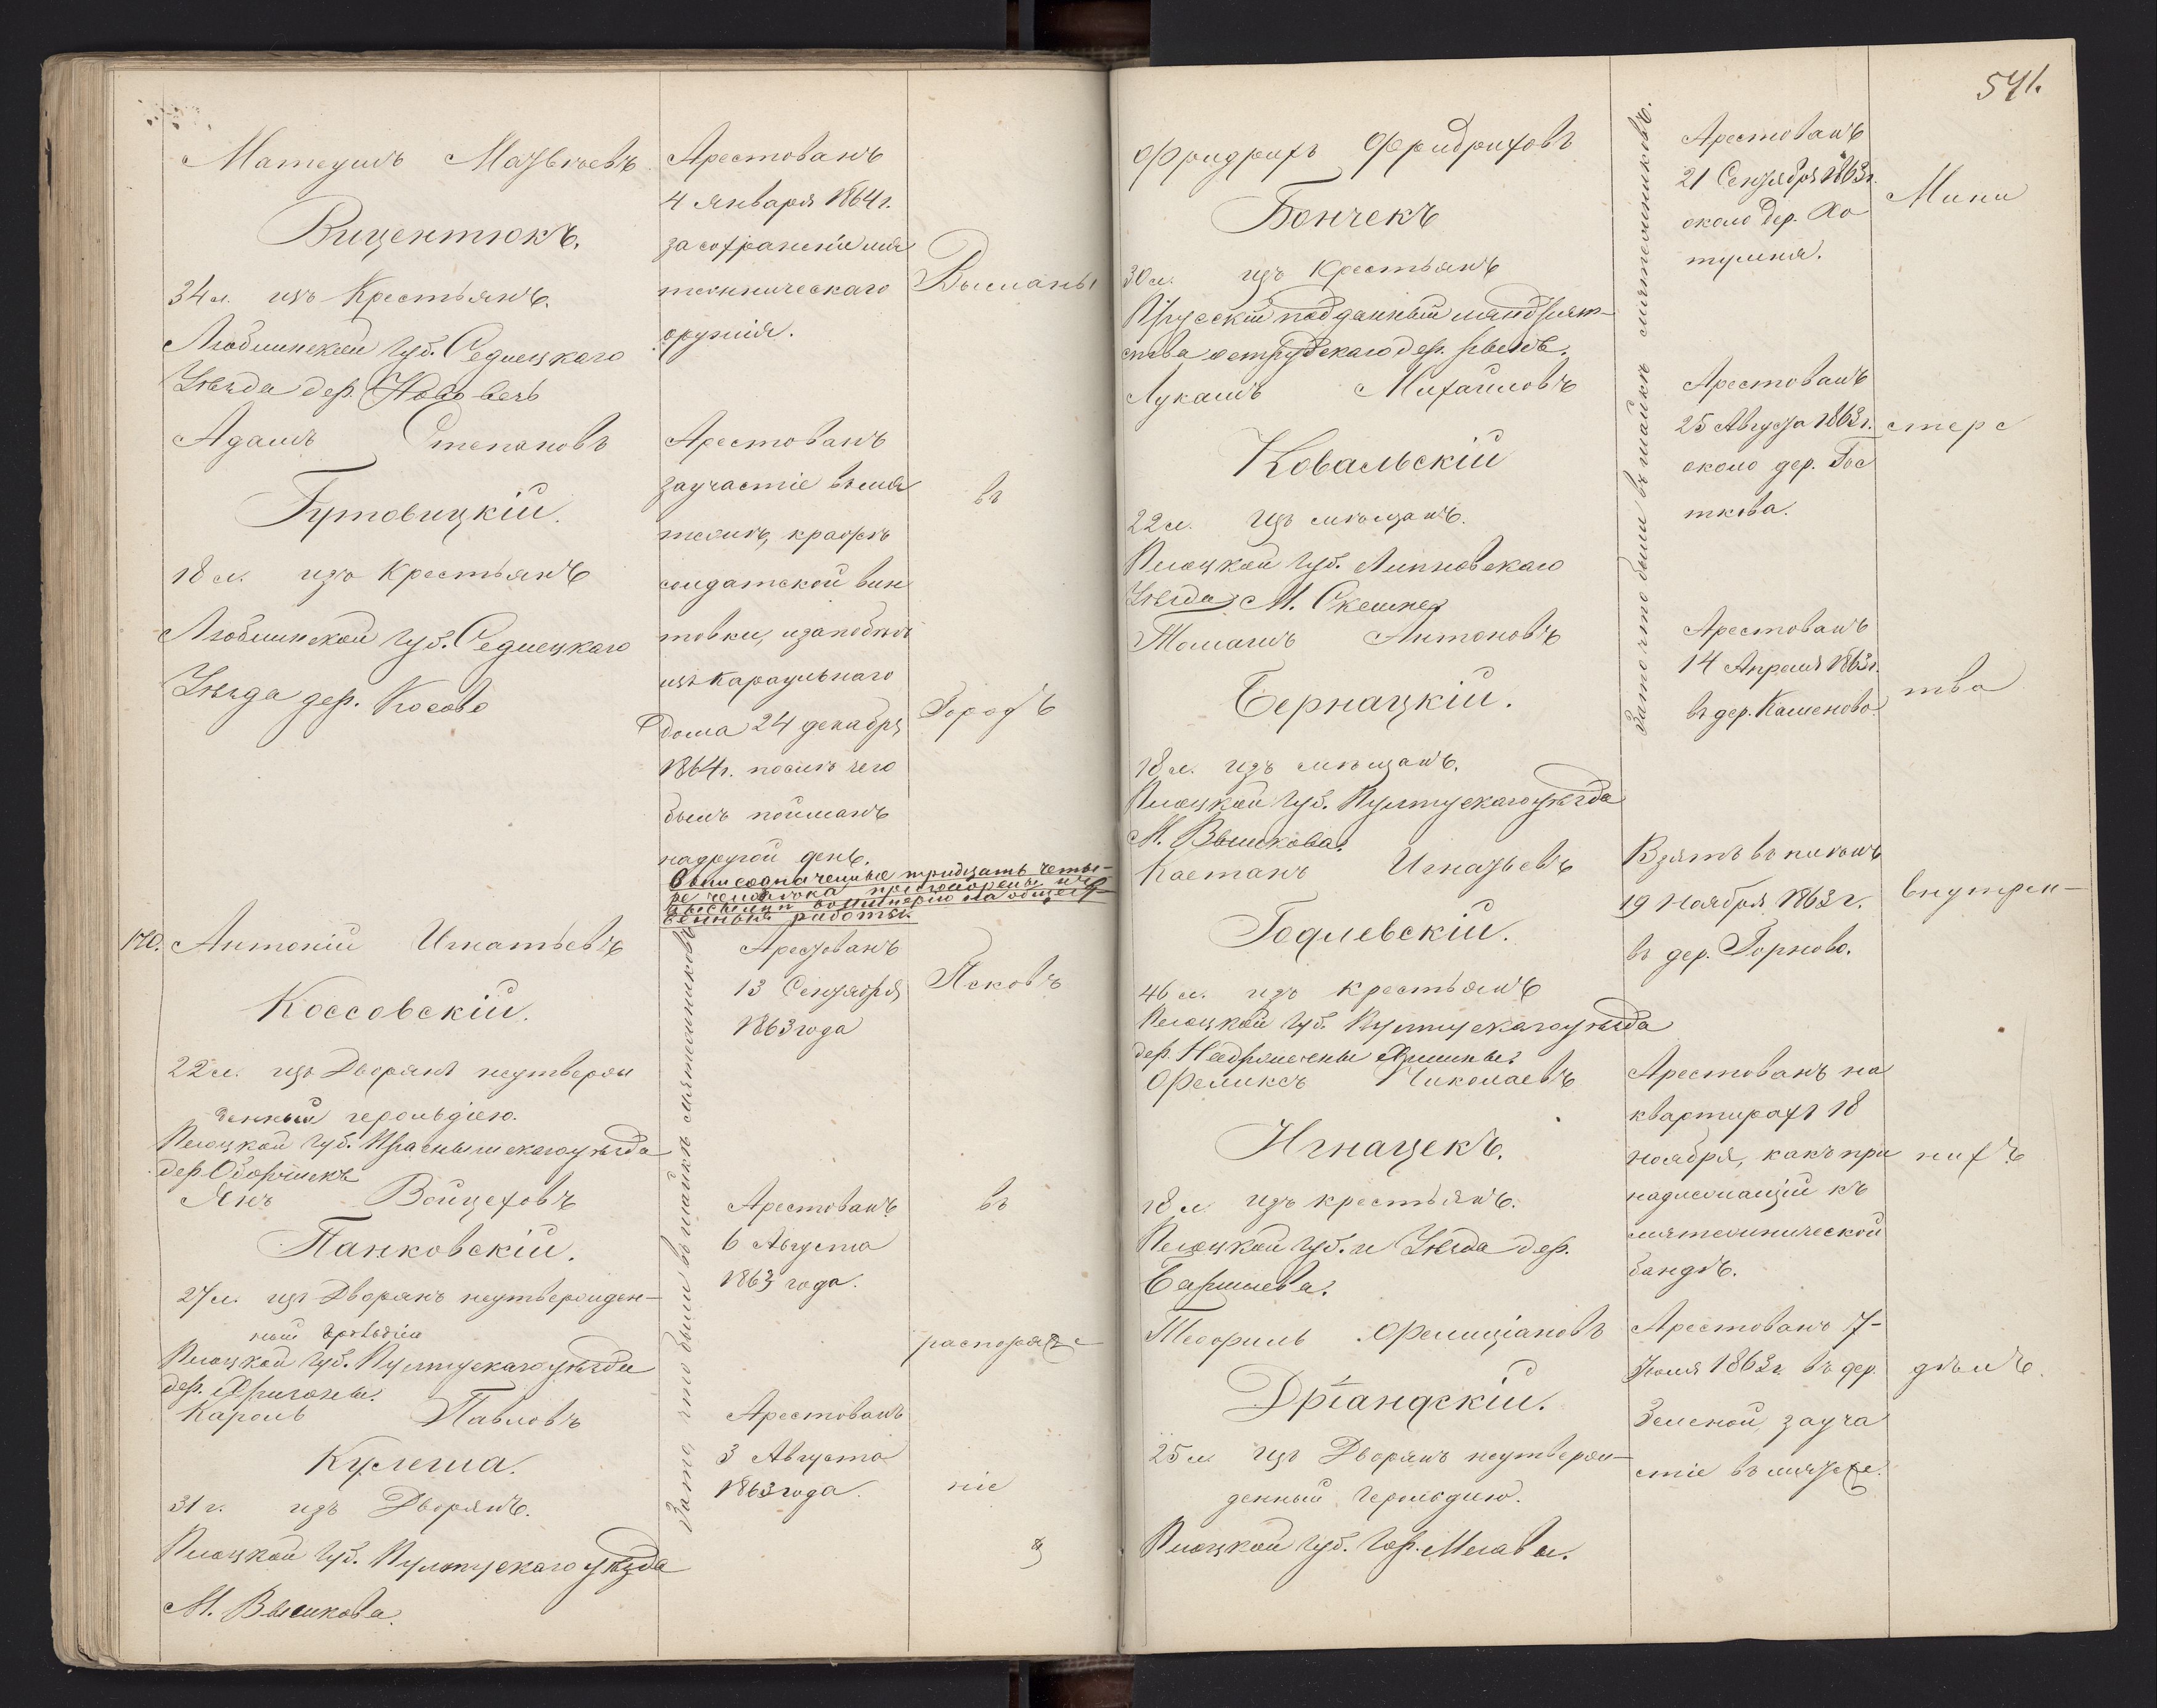 541.
Матеушъ Матвѣевъ
Виценті­юкъ.
34 л. изъ Крестьянъ.
Люблинской Губ. Седлецкаго
Уѣзда дер. Ново весь
Арестованъ
4 Января 1864 г.
за сохраненіе мя
тежническаго
оружія.
Высланы
Адамъ Степановъ
Гутовицкій.
18 л. изъ Крестьянъ
Люблинской Губ. Седлецкаго
Уѣзда дер. Косово
Арестованъ
за участіе въ мя
тежѣ, кражѣ
солдатской вин
товки, и за побѣгъ
изъ караульнаго
дома 24 декабря
1864 г. послѣ чего
былъ пойманъ
на другой день.
въ
Городъ
Вышеозначенные тридцать четы-
ре человѣка
въ Имперію на общест
венныя работы.
170. Антоній Игнатьевъ
Коссовскій.
22 л. изъ Дворянъ неутверж
денный герольдіею.
Плоцкой Губ. Праснышскаго уѣзда
дер.
Арестованъ
13 Сентября
1863 года
Псковъ
Янъ Войцеховъ
Панковскій.
27 л. изъ Дворянъ неутвержден-
ный герольдіею
Плоцкой Губ. Пултускаго уѣзда
дер.
Арестованъ
6 Августа
1863 года.
въ
распоряже
Кароль Павловъ
Кулеша.
31 г. изъ Дворянъ.
Плоцкой Губ. Пултускаго уѣзда
М. Вышкова.
Арестованъ
3 Августа
1863 года.
ніе
За то, что были въ шайкѣ мятежниковъ
Фридрихъ Фридриховъ
Бончекъ
30 л. изъ Крестьянъ
Прусскій подданный ландрат-
ства остпрудскаго дер.
Арестованъ
21 Сентября 1863 г.
около дер. Хо
туменя.
Мини
Лукашъ Михайловъ
Ковальскій
22 л. изъ мѣщанъ.
Плоцкой Губ. Липновскаго
Уѣзда М. Скемпе
Арестованъ
25 Августа 1863 г.
около дер. Гос
ткова.
стерс
Томашъ Антоновъ
Бернацкій.
18 л. изъ мѣщанъ.
Плоцкой Губ. Пултускаго уѣзда
М. Вышкова.
Арестованъ
14 Апреля 1863 г.
въ дер. Каменово.
тва
За то что были въ шайкѣ мятежниковъ.
Каетанъ Игнатьевъ
Годлевскій.
46 л. изъ крестьянъ
Плоцкой Губ. Пултускаго уѣзда
дер.
Взятъ въ плѣнъ
19 Ноября 1863 г.
въ дер. Горново.
внутрен-
Феликсъ Николаевъ
Игнацекъ.
18 л. изъ крестьянъ.
Плоцкой Губ. и Уѣзда дер.
Арестованъ на
квартирахъ 18
ноября, какъ при
надлежащій къ
мятежнической
бандѣ.
нихъ
Теофиль Фелиціановъ
Дрганскій.
25 л. изъ Дворянъ неутверж-
денный герольдіею.
Плоцкой Губ. Гор. Млавы.
Арестованъ 7-
Іюля 1863 г. въ дер.
Зеленой, за уча
стіе въ мятеже.
дѣлъ.